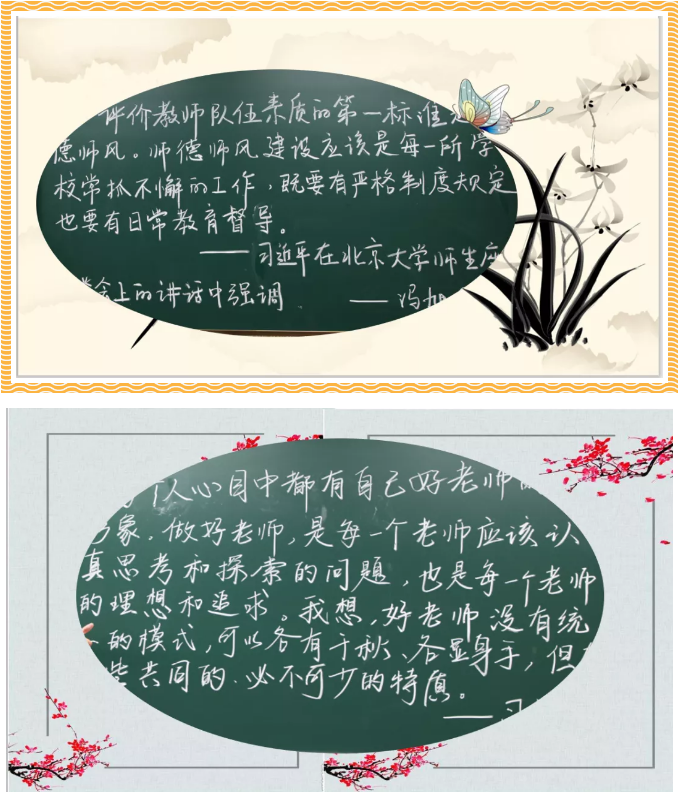 评价教师队伍素质的第一标准
德师风。师德师风建设应该是每一所学
校常抓不懈的工作，既要有严格制度规定
也要有日常教育督导。
——习近平在北京大学师生座
会上的讲话中强调 ——冯
个人心目中都有自己好老师
象，做好老师，是每一个老师应该认
真思考和探索的问题，也是每一个老师
的理想和追求。我想，好老师没有统
的模式，可以各有千秋、各显身手，但
些共同的、必不可少的特质。
——习